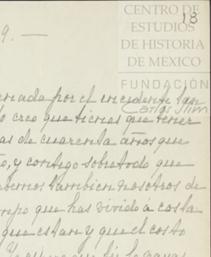 CENTRO DE
ESTUDIOS
DE HISTORIA
DE MEXICO
FUNDACIÓN
Carlos Slim
18
9. —
por el incidente tan
creo que tienes que tener
as de cuarenta años que
o, y contigo sobre todo que
bemos tambien nosotros de
mpo que has vivido á costa
que estan y que el costo